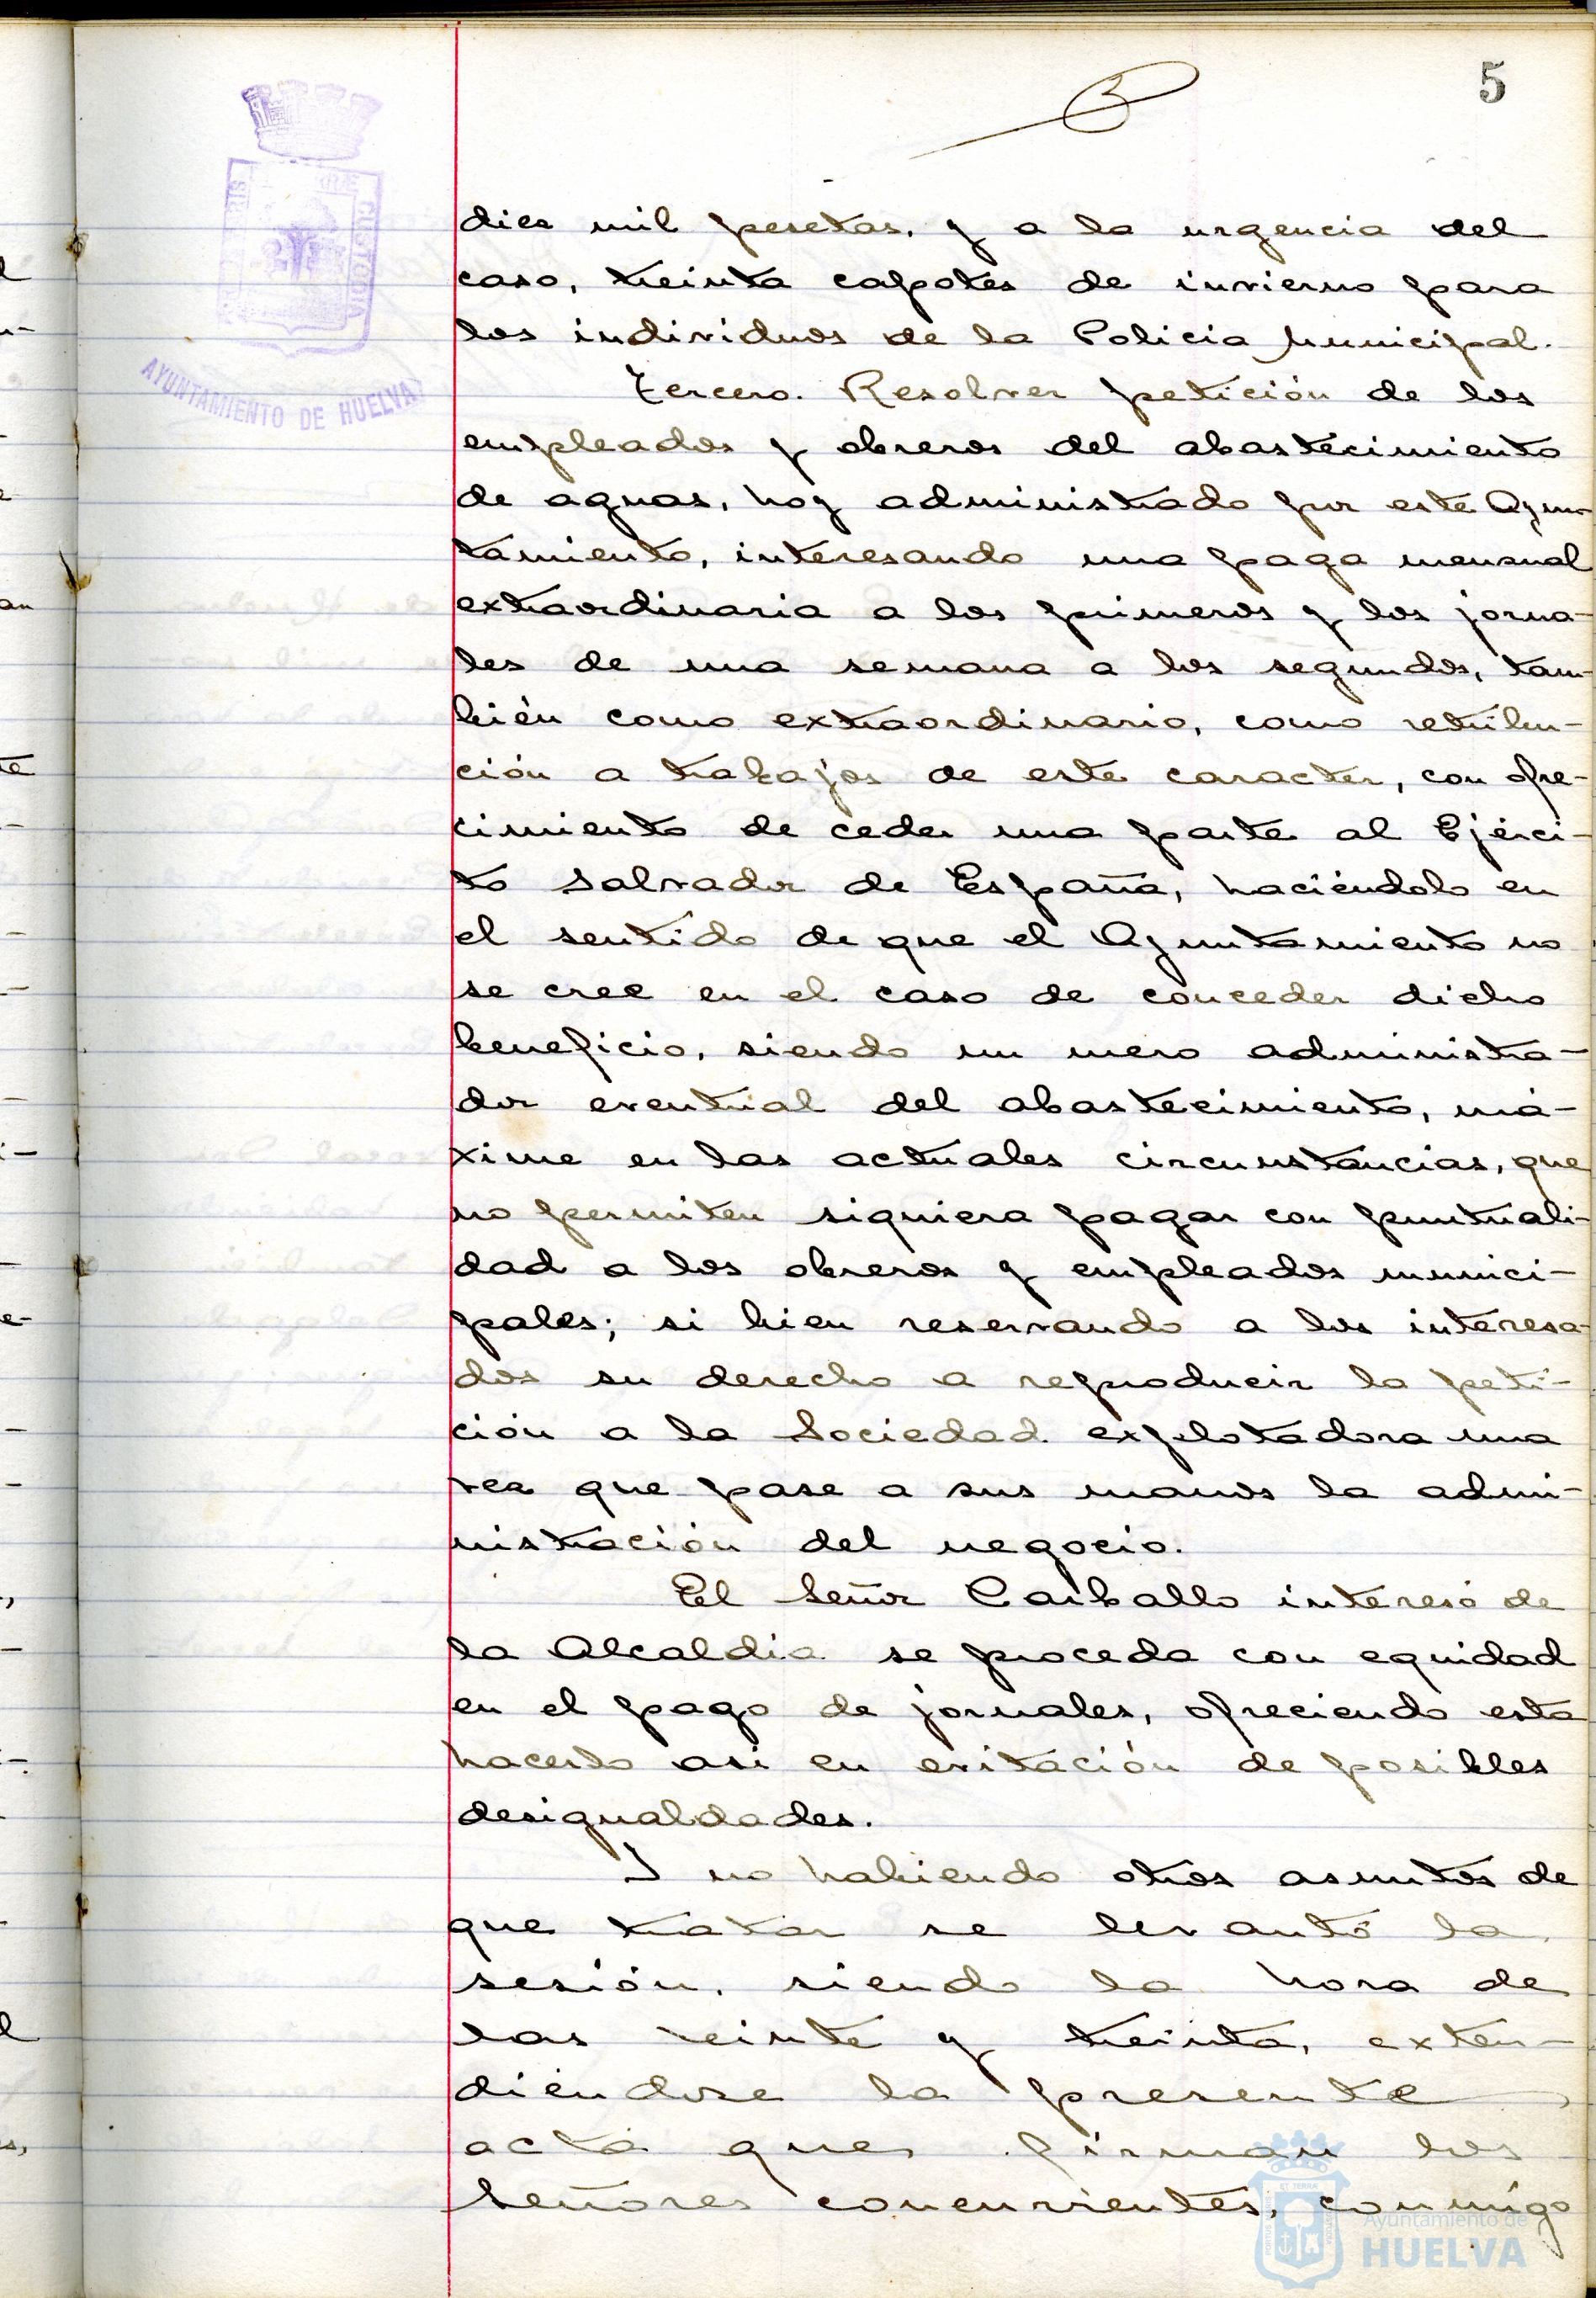 5
AYUNTAMIENTO DE HUELVA
diez mil pesetas, y a la urgencia del
caso, treinta capotes de invierno para
los individuos de la Policia Municipal.
Tercero. Resolver petición de los
empleados y obreros del abastecimiento
de aguas, hoy administrado por este Ayun
tamiento, interesando una paga mensual
extraordinaria a los primeros y los jorna-
les de una semana a los segundos, tam-
bién como extraordinario, como retribu-
ción a trabajos de este caracter, con ofre-
cimiento de ceder una parte al Ejérci-
to Salvador de España, haciéndolo en
el sentido de que el Ayuntamiento no
se cree en el caso de conceder dicho
beneficio, siendo un mero administra-
dor eventual del abastecimiento, má-
xime en las actuales circunstancias, que
no permiten siquiera pagar con puntuali-
dad a los obreros y empleados munici-
pales; si bien reservando a los interesa-
dos su derecho a reproducir la peti-
ción a la Sociedad explotadora una
vez que pase a sus manos la admi-
nistración del negocio.
El Señor Carballo interesó de
la Alcaldia se proceda con equidad
en el pago de jornales, ofreciendo esta
hacerlo asi en evitación de posibles
desigualdades.
Y no habiendo otros asuntos de
que tratar se levantó la
sesión, siendo la hora de
las veinte y treinta, exten-
diéndose la presente
acta que firman los
Señores concurrientes, conmigo
Ayuntamiento de
HUELVA